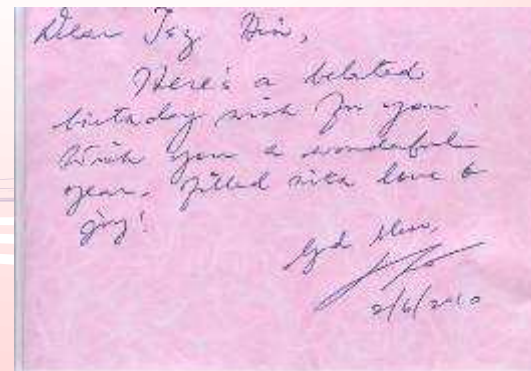 Dear Tsz Hin,
Here's a belated
birthday wish for you.
Wish you a wonderful
year, filled with love &
joy!
God bless,
2/6/2010